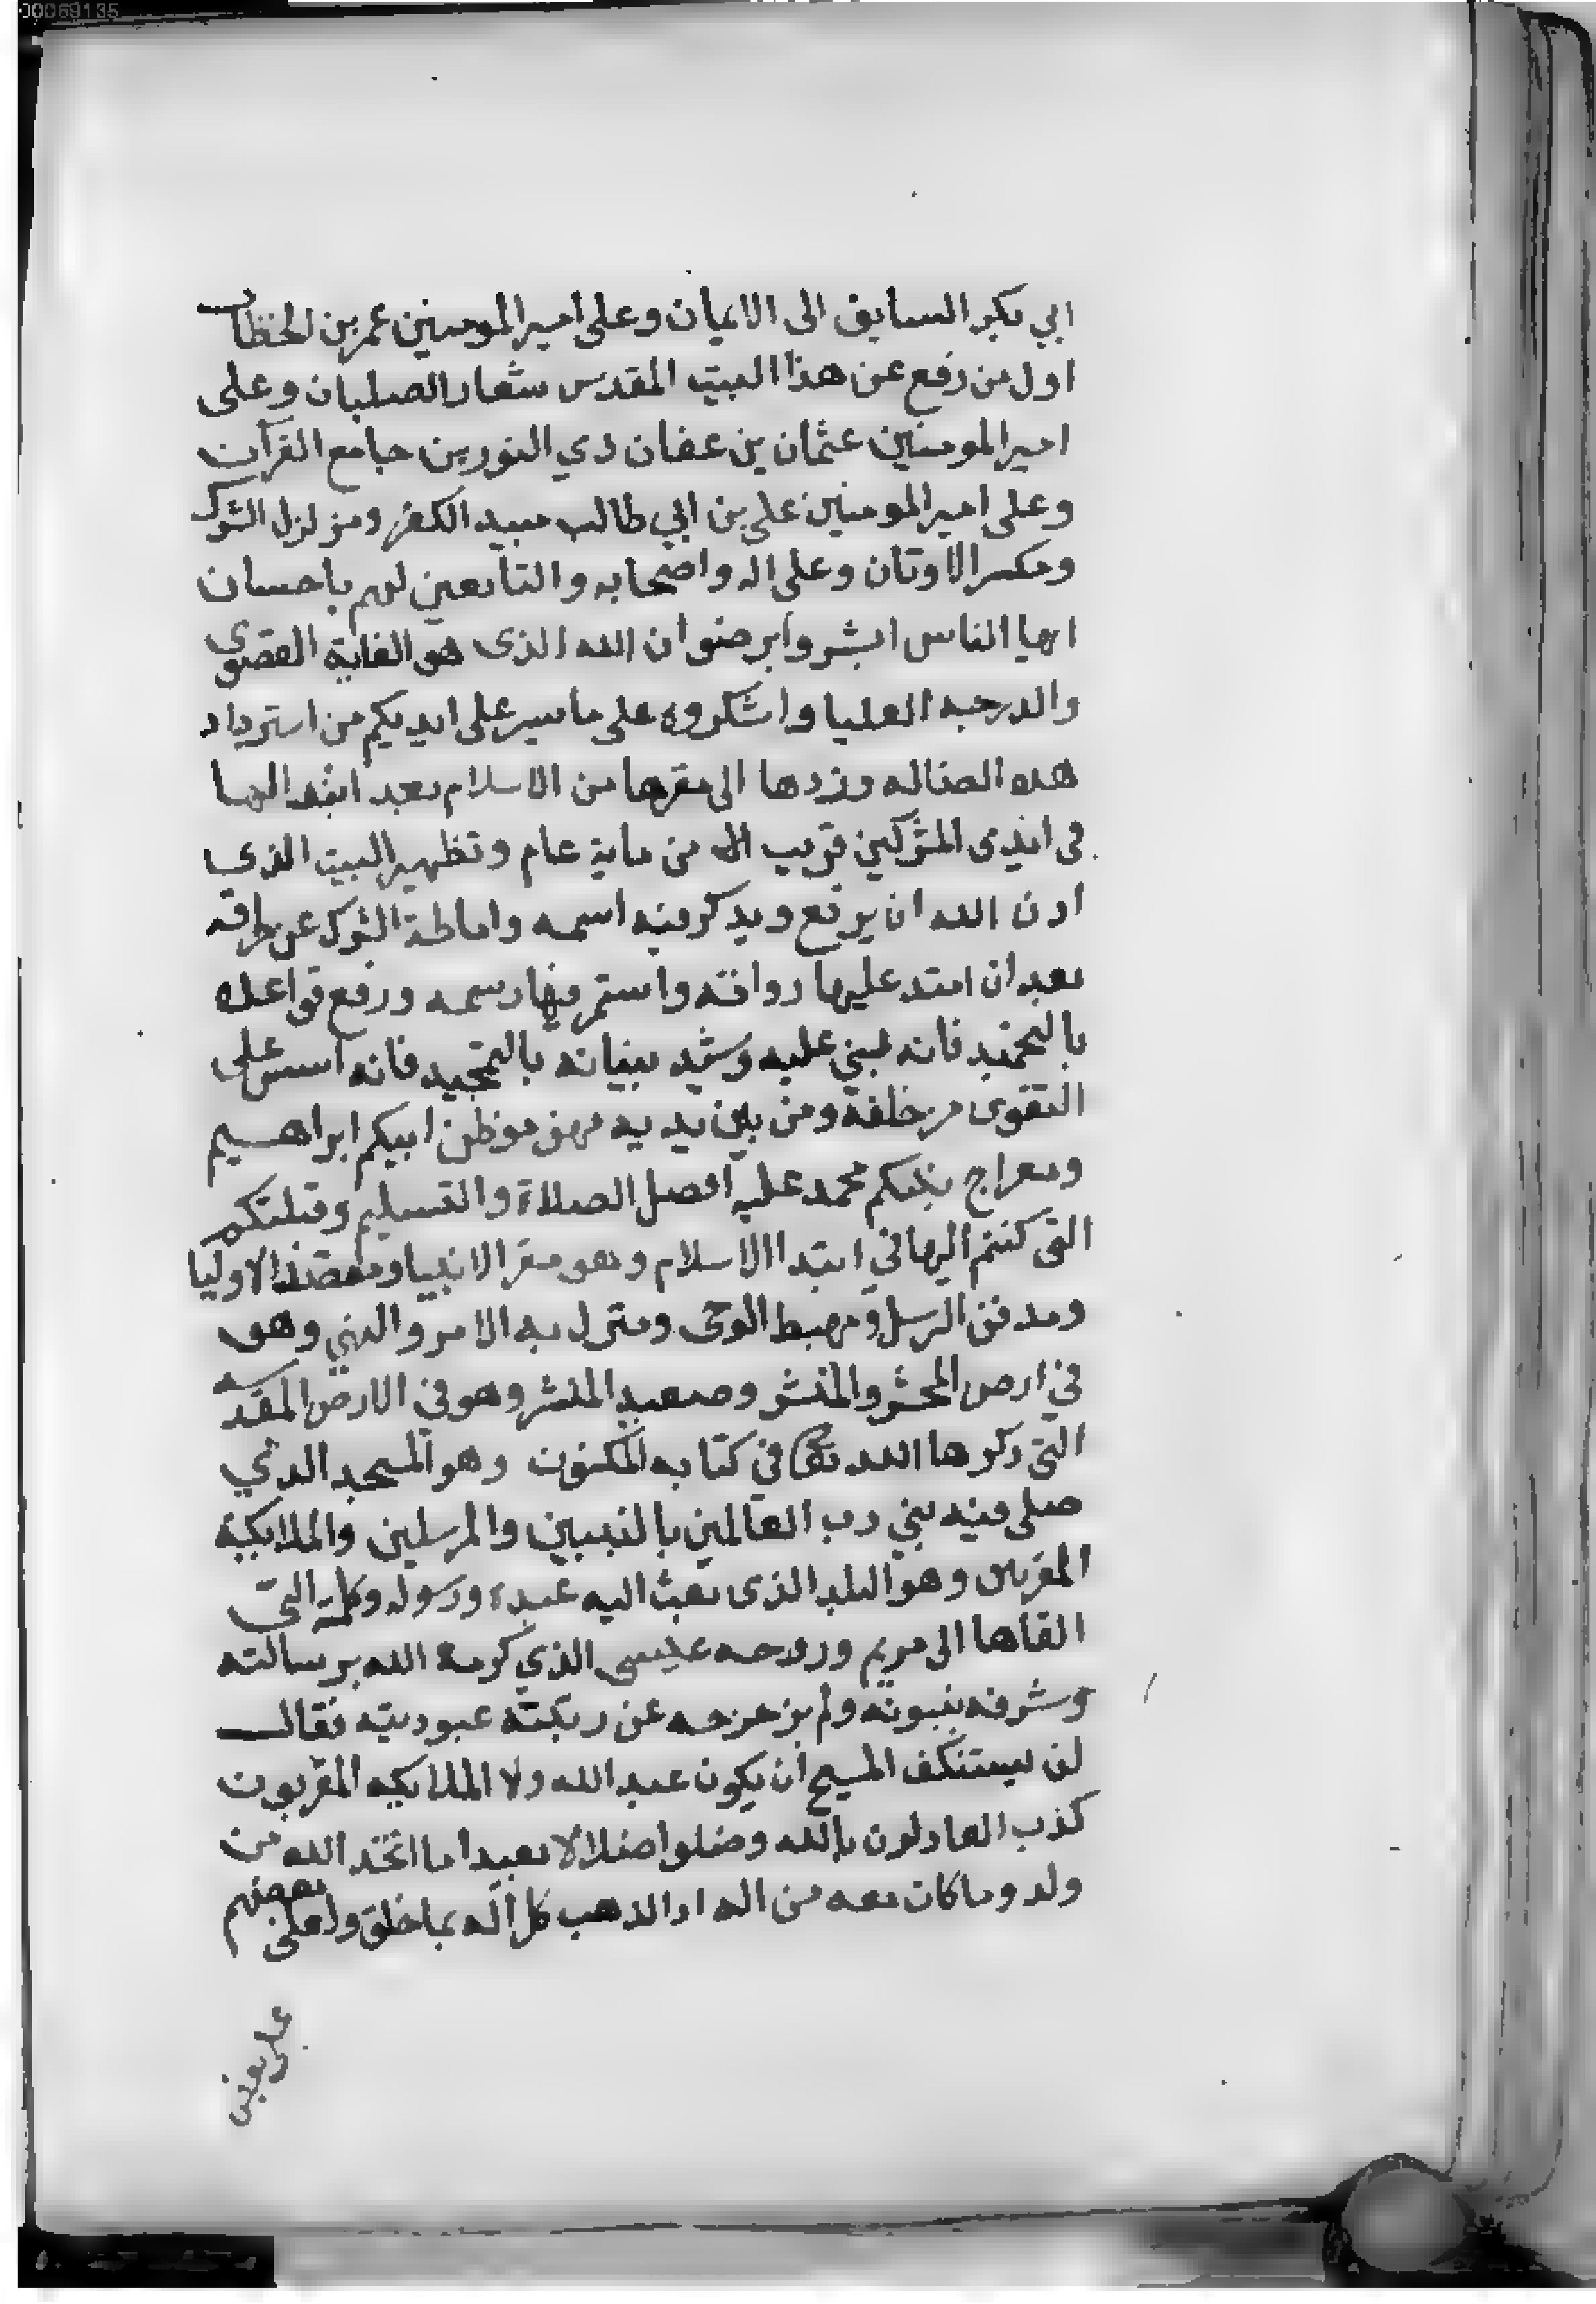 00069135
ابي بكر السابق الى الايمان وعلى امير المومنين عمر بن الخطاب
اول من رفع عن هذا البيت المقدس شعار الصلبان وعلى
امير المومنين عثمان بن عفان ذي النورين جامع القرآن
وعلى امير المومنين على بن ابي طالب مبيد الكفر ومزلزل الشرك
ومكسر الاوتان وعلى اله واصحابه والتابعين لهم باحسان
ايها الناس ابشروا برضوان الله الذى هو الغاية القصوى
والدرجه العليا واشكروه على ما يسر على ايديكم من استرداد
هده الضاله وردها الى مقرها من الاسلام بعد ابتدالها
فى ايدى المشركين قريب من ماية عام وتطهير البيت الذي
ادن الله ان يرفع ويدكر فيه اسمه واماطة الشرك عن طرقه
بعد ان امتد عليها رواقه واستمر فيها رسمه ورفع قواعده
بالتحميد فانه بني عليه وشيد بنيانه بالتمجيد فانه اسس على
التقوى من خلفه ومن بين يديه فهو موطن ابيكم ابراهيم
ومعراج نبيكم محمد عليه افضل الصلاة والتسليم وقبلتكم
التى كنتم اليها في ابتدا الاسلام وهو مقر الانبيا ومقصد الاوليا
ومدفن الرسل ومهبط الوحى ومنزل به الامر والنهي وهو
في ارض المحشر والمنشر وصعيد المنشر وهو في الارض المقدسه
التى دكرها الله تعالى في كتابه المكنون وهو المسجد الذي
صلى فيه نبي رب العالمين بالنبيين والمرسلين والملايكة
المقربين وهو البلد الذى بعث اليه عبده ورسوله وكلمته التى
القاها الى مريم وروحه عيسى الذي كرمه الله برسالته
وشرفه بنبوته ولم يزحزحه عن رتبته عبوديته فقال
لن يستنكف المسيح ان يكون عبد الله ولا الملايكه المقربون
كذب العادلون بالله وضلوا ضلالا بعيدا ما اتخد الله من
ولد وما كان معه من اله ادا لدهب كل اله بما خلق ولعلى بعضهم
على بعض